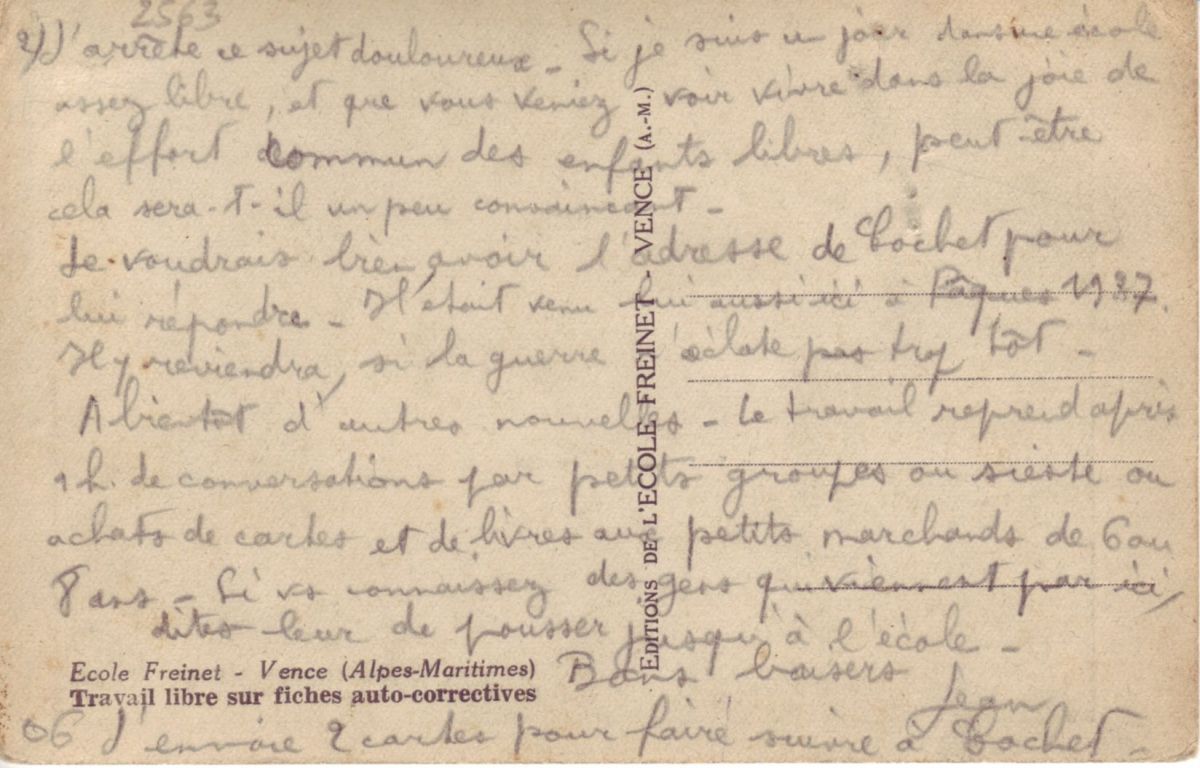 2563
2) J'arrête ce sujet douloureux - Si je suis un jour dans une école
assez libre, et que vous veniez voir vivre dans la joie de
l'effort commun des enfants libres, peut-être
cela sera-t-il un peu convaincant -
Je voudrais bien avoir l'adresse de Cochet pour
lui répondre - Il était venu lui aussi ici à Pâques 1937.
Il y reviendra, si la guerre n'éclate pas trop tôt -
A bientôt d'autres nouvelles - Le travail reprend après
1 h. de conversations par petits groupes ou sieste ou
achats de cartes et de livres aux petits marchands de 6 ou
8 ans - Si vs connaissez des gens qui viennent par ici,
dites leur de pousser jusqu'à l'école -
Bons baisers
Jean
J'envoie 2 cartes pour faire suivre à Cochet -
06
Ecole Freinet - Vence (Alpes-Maritimes)
Travail libre sur fiches auto-correctives
EDITIONS DE L'ECOLE FREINET - VENCE (A.-M.)